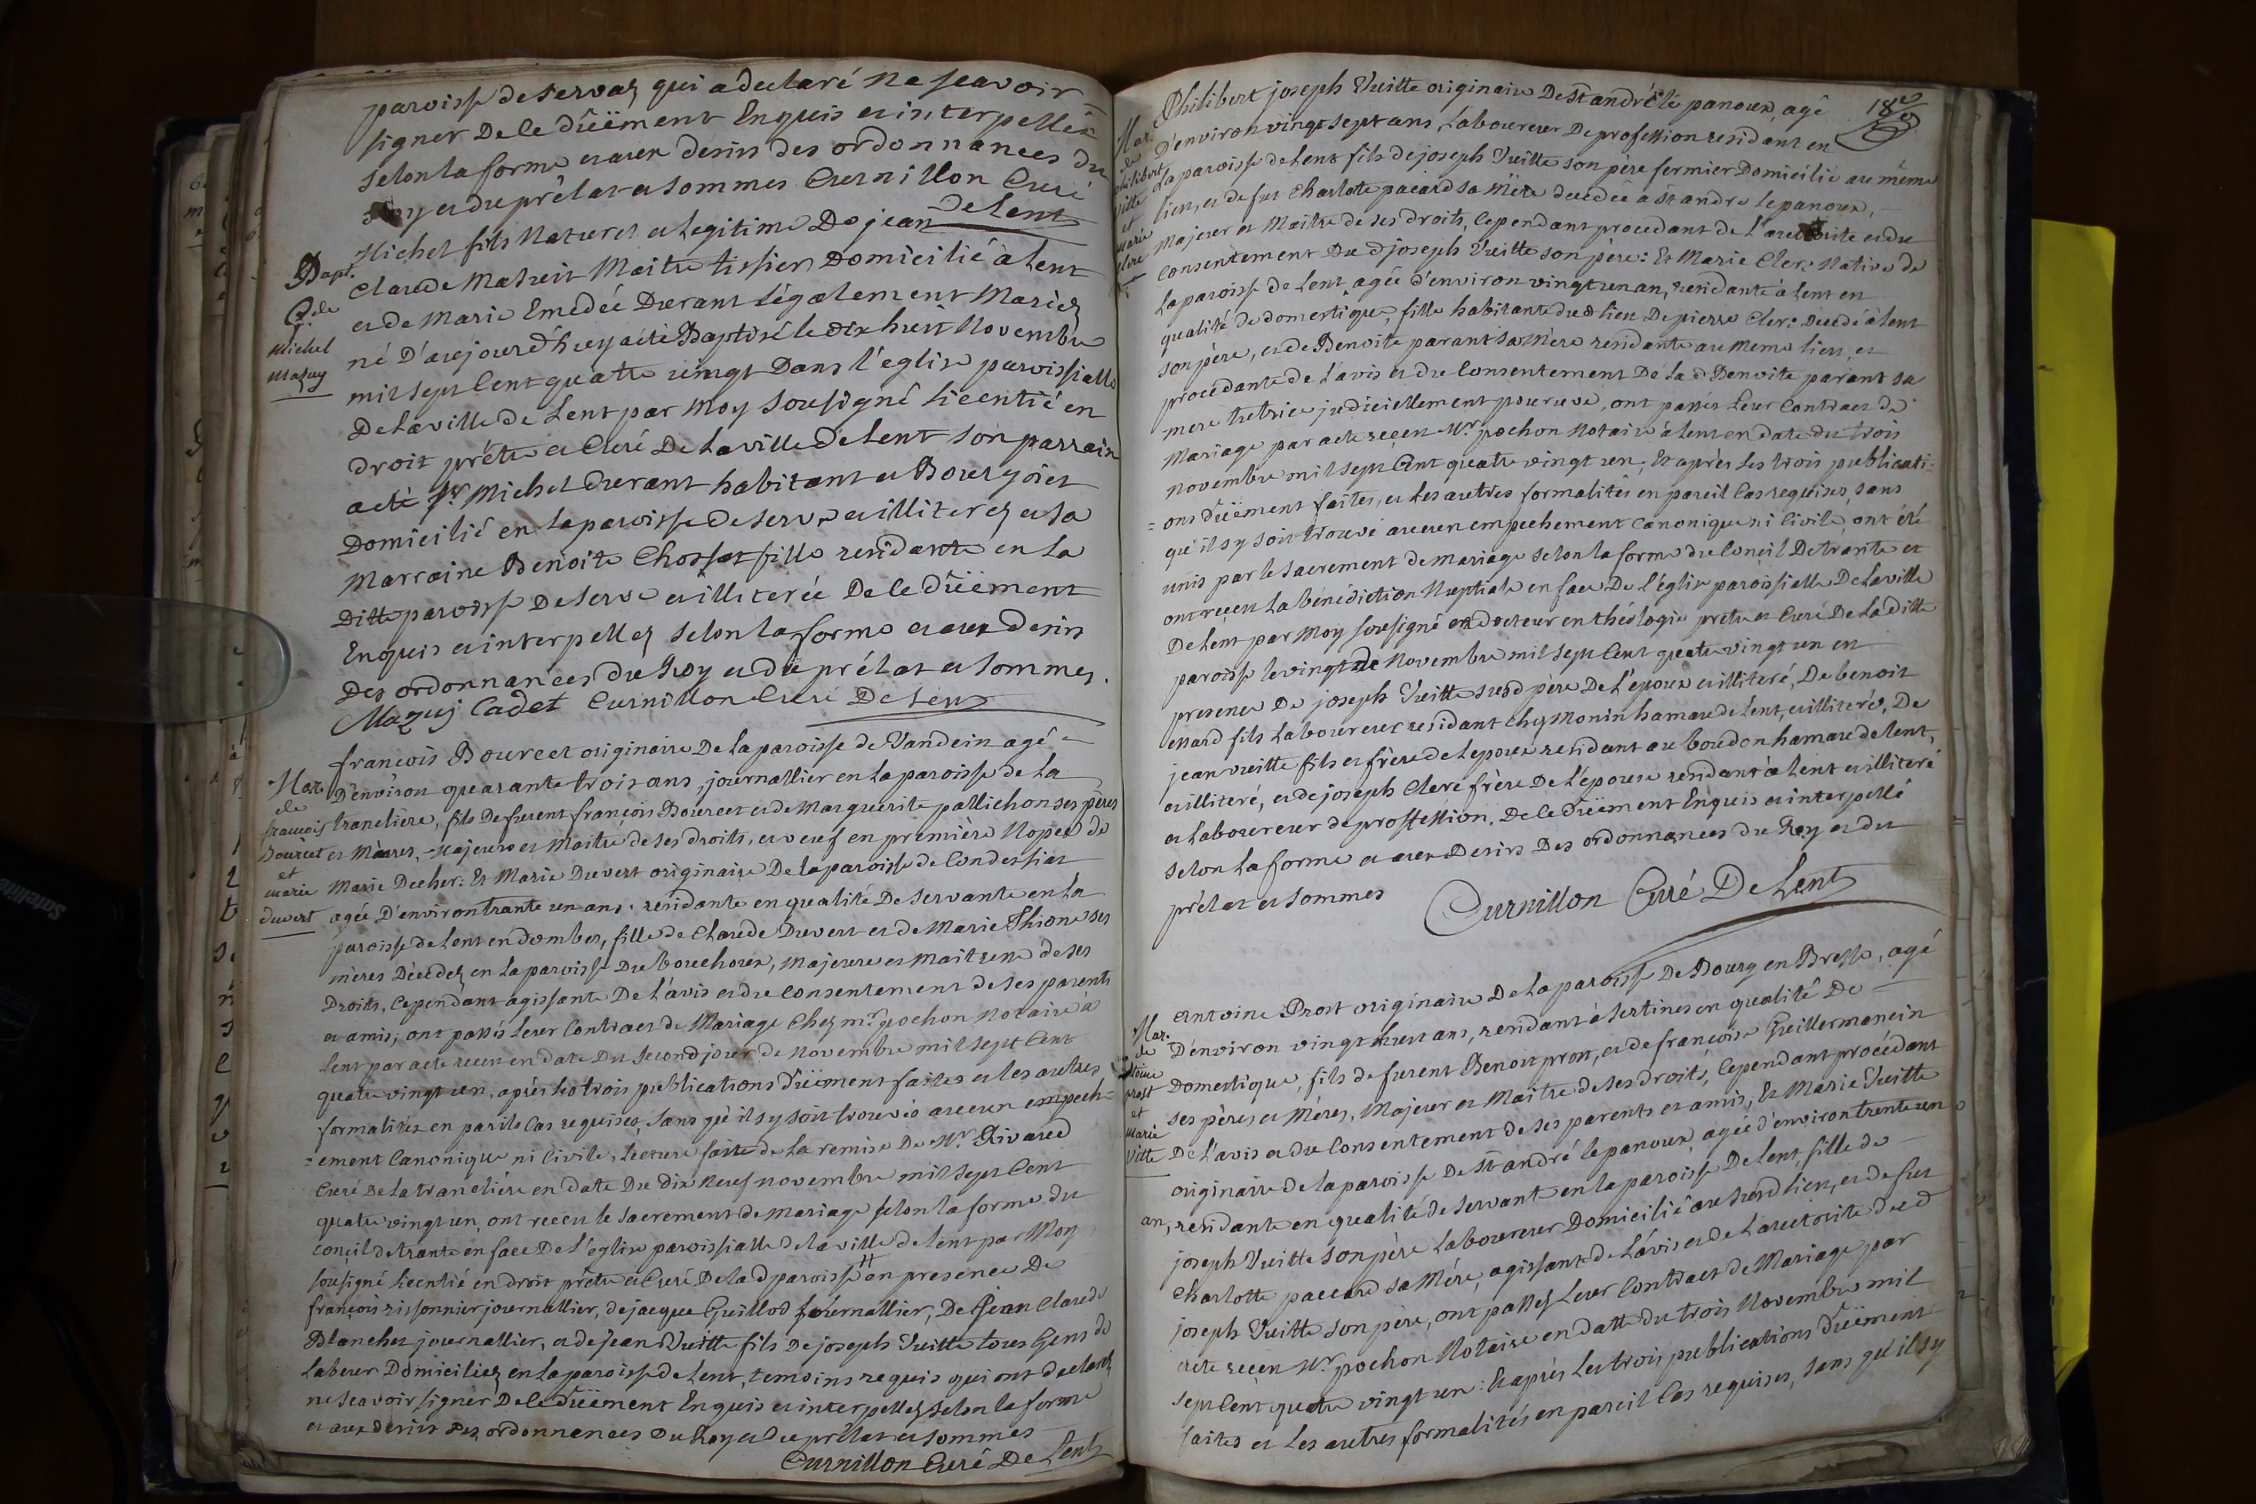 paroisse de servaz qui a declaré ne sçavoir
signer De ce dûëment Enquis et interpellés
selon la forme et aux desirs des ordonnances du
Roy et du prélat et sommes Curnillon Curé
De Lent
Bapt.
de
Michel
Mazuy
Michel fils Naturel et Legitime De jean
Claude Mazuit Maitre tissier Domicilié à Lent
et de Marie Emedée Durant Légalement Mariéz
né D'aujourd'huy a été Baptisé le dix huit Novembre
mil sept Cent quatre vingt Dans l'église paroissialle
De La ville de Lent par Moy Sousigné Licentié en
droit prêtre et Curé De La ville De Lent son parrain
a été sr Michel durant habitant et Bourgois
Domicilié en la paroisse de serve et illiteréz et sa
Marraine Benoite Chossat fille residante en La
Ditte paroisse De serve et illiterée De ce dûëment
Enquis et interpellez selon la forme et aux desirs
Des ordonnances du Roy et du prélat et sommes.
Mazuy Cadet Curnillon Curé De Lent
Mar.
de
françois
Bourcet
et
marie
duvert
françois Bourcet originaire De La paroisse de Vandein agé
D'environ quarante trois ans, journallier en La paroisse de La
tranclière, fils De furent françois Bourcet et de Marguerite pallichon ses pères
et Mères, Majeur et Maitre de ses droits, et veuf en première Nopce de
Marie Decher: Et Marie Duvert originaire De La paroisse de Condessiat
agée D'environ trante un ans, residante en qualité De servante en La
paroisse de Lent en dombes, fille de Claude Duvert et de Marie Thion ses
mères Décédez en La paroisse Du bouchoux, Majeure et Maitresse de ses
Droits, Cependant agissante De L'avis et du Consentement de ses parents
et amis, ont passés Leur Contract de Mariage Chez mr. pochon Notaire à
Lent par acte reçu en date Du second jour de Novembre mil sept Cent
quatre vingt un, après les trois publications dûëment faites et les autres
formalités en pareils Cas requises, sans qu'il sy soit trouvé aucun empech=
=ement Canonique ni Civile, Lecture faite de La remise De Mr Rivaud
Curé De La tranclière en date Du dix Neuf novembre mil sept Cent
quatre vingt un, ont reçu le sacrement de Mariage selon la forme du
conçil de trante en face De L'église paroissialle de la ville de Lent par Moy
sousigné Licentié en droit prêtre et Curé De La d paroisse en presence De
françois rissonnier journallier, de jacque Guillod journallier, De jean Claude
Blanchet journallier, et de jean Vuitte fils De joseph Vuitte tous Gens de
Labeur Domiciliez en La paroisse de Lent, temoins requis qui ont declarés
ne sçavoir signer De ce dûëment Enquis et interpellez selon la forme
et aux desirs des ordonnances Du Roy et Du prélat et sommes
Curnillon Curé De Lent
18e
Mar.
de
philibert
Vitte
et
Marie
Clerc
Philibert joseph Vuitte originaire De st andré le panoux, agé
D'environ vingt sept ans, Laboureur De profession residant en
La paroisse de Lent fils de joseph Vuitte son père fermier Domicilié au même
lieu, et de fut Charlote pacard sa Mère decedée à st andré le panoux,
Majeur et Maitre de ses droits, Cependant procedant de L'auctorite et du
Consentement Du d joseph Vuitte son père: Et Marie Clerc Native de
La paroisse de Lent, agée d'environ vingt un an, residante à Lent en
qualité de domestique, fille habitante dud lieu De pierre Clerc Decedé à Lent
son père, et de Benoite parant sa Mère residante au Meme lieu, et
procedante de L'avis et du Consentement De La d Benoite parant sa
mere tutrice judiciellement pourvue, ont passés Leur Contract de
Mariage par acte reçu Mr. pochon Notaire à Lent en date du trois
Novembre mil sept Cent quatre vingt un; Et après Les trois publicati=
=ons dûëment faites, et Les autres formalités en pareil Cas requises, sans
qu'il sy soit trouvé aucun empechement Canonique ni Civile, ont été
unis par le sacrement de mariage selon la forme du Conçil De trante et
ont reçu La bénédiction Nuptiale en face De L'église paroissialle De La ville
De Lent par Moy sousigné docteur en théologie prêtre et Curé De La ditte
paroisse le vingt de Novembre mil sept Cent quatre vingt un en
presence De joseph Vuitte susd père De L'epoux et illiteré, De benoit
ertard fils Laboureur residant Chez Monin hamau de Lent, et illiteré, De
jean vuitte fils et frère de L'epoux residant au boudon hamau de Lent,
et illiteré, et de joseph Clerc frère De L'épouse residant à Lent et illiteré
et Laboureur de proffession. De ce dûëment Enquis et interpellé
selon La forme et aux Desirs Des ordonnances du Roy et du
prélat et sommes Curnillon Curé De Lent
Mar.
de
Antoine
Prost
et
Marie
Vitte
Antoine Prost originaire De La paroisse De Bourg en Bresse, agé
D'environ vingt huit ans, residant à sertines en qualité De
Domestique, fils de furent Benoit prost, et de françoise Guillermanein
ses pères et Mères, Majeur et Maitre de ses droits, Cependant procédant
De L'avis et du Consentement de ses parents et amis, Et Marie Vuitte
originaire de la paroisse De st andré le panoux, agée d'environ trente un
an, residante en qualité de servant en la paroisse De Lent, fille de
joseph Vuitte son père Laboureur Domicilié au susd lieu, et de fut
Charlotte paccard sa Mére, agissant de L'avis et de L'auctorité dud
joseph Vuitte son père, ont passez Leur Contract de Mariage par
acte reçu Mr. pochon Notaire en datte du trois Novembre mil
sept Cent quatre vingt un: Et après Les trois publications dûëment
faites et Les autres formalités en pareil Cas requises, sans qu'il sy